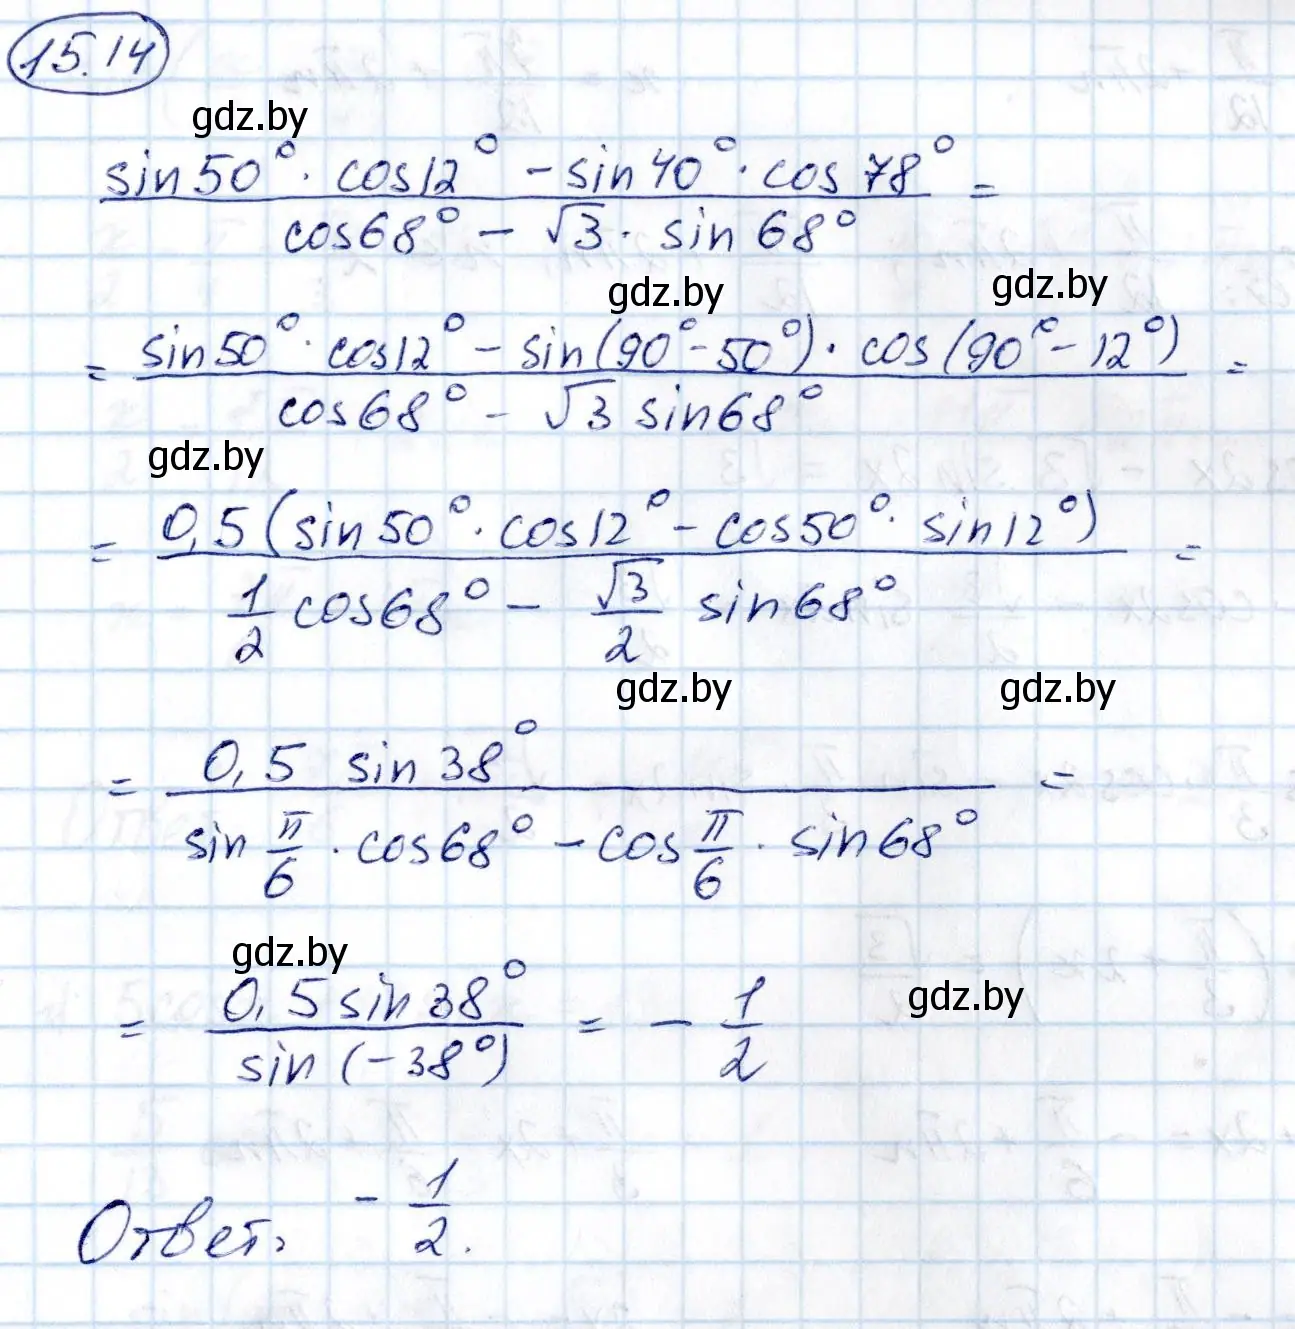 15.14
gdz.by
sin50° · cos12° - sin40° · cos78° / cos68° - √3 · sin68° =
gdz.by gdz.by
= sin50° · cos12° - sin(90° - 50°) · cos(90° - 12°) / cos68° - √3 sin68° =
gdz.by
= 0,5(sin50° · cos12° - cos50° · sin12°) / 1/2 cos68° - √3/2 sin68° =
gdz.by gdz.by
= 0,5 sin38° / sin π/6 · cos68° - cos π/6 · sin68° =
gdz.by
= 0,5 sin38° / sin(-38°) = - 1/2
gdz.by
Ответ: - 1/2.